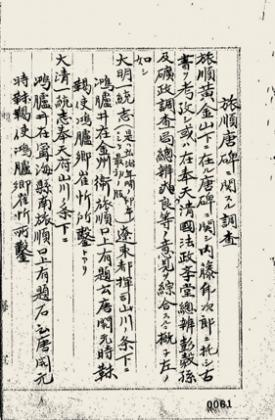 旅順唐碑ニ関スル調査
旅順黄金山下ニ在ル唐碑ニ関シ内藤
次郎ニ托シ古
書ヲ考攷シ或ハ在奉天清国法政学堂総辨彭穀孫
及礦政調査局総辨
良等ノ意見ヲ綜合スルニ概子左ノ
如シ
大明一統志
遼東都指揮司山川ノ条下ニ
鴻臚井在金州衛旅順口上有題石云唐開元時
鞨使鴻臚卿崔忻所鑿トアリ
大清一統志奉天府山川ノ条下ニ
鴻臚井在寧海縣南旅順口上有題石云唐開元
時
鞨使鴻臚卿崔忻所鑿
0061